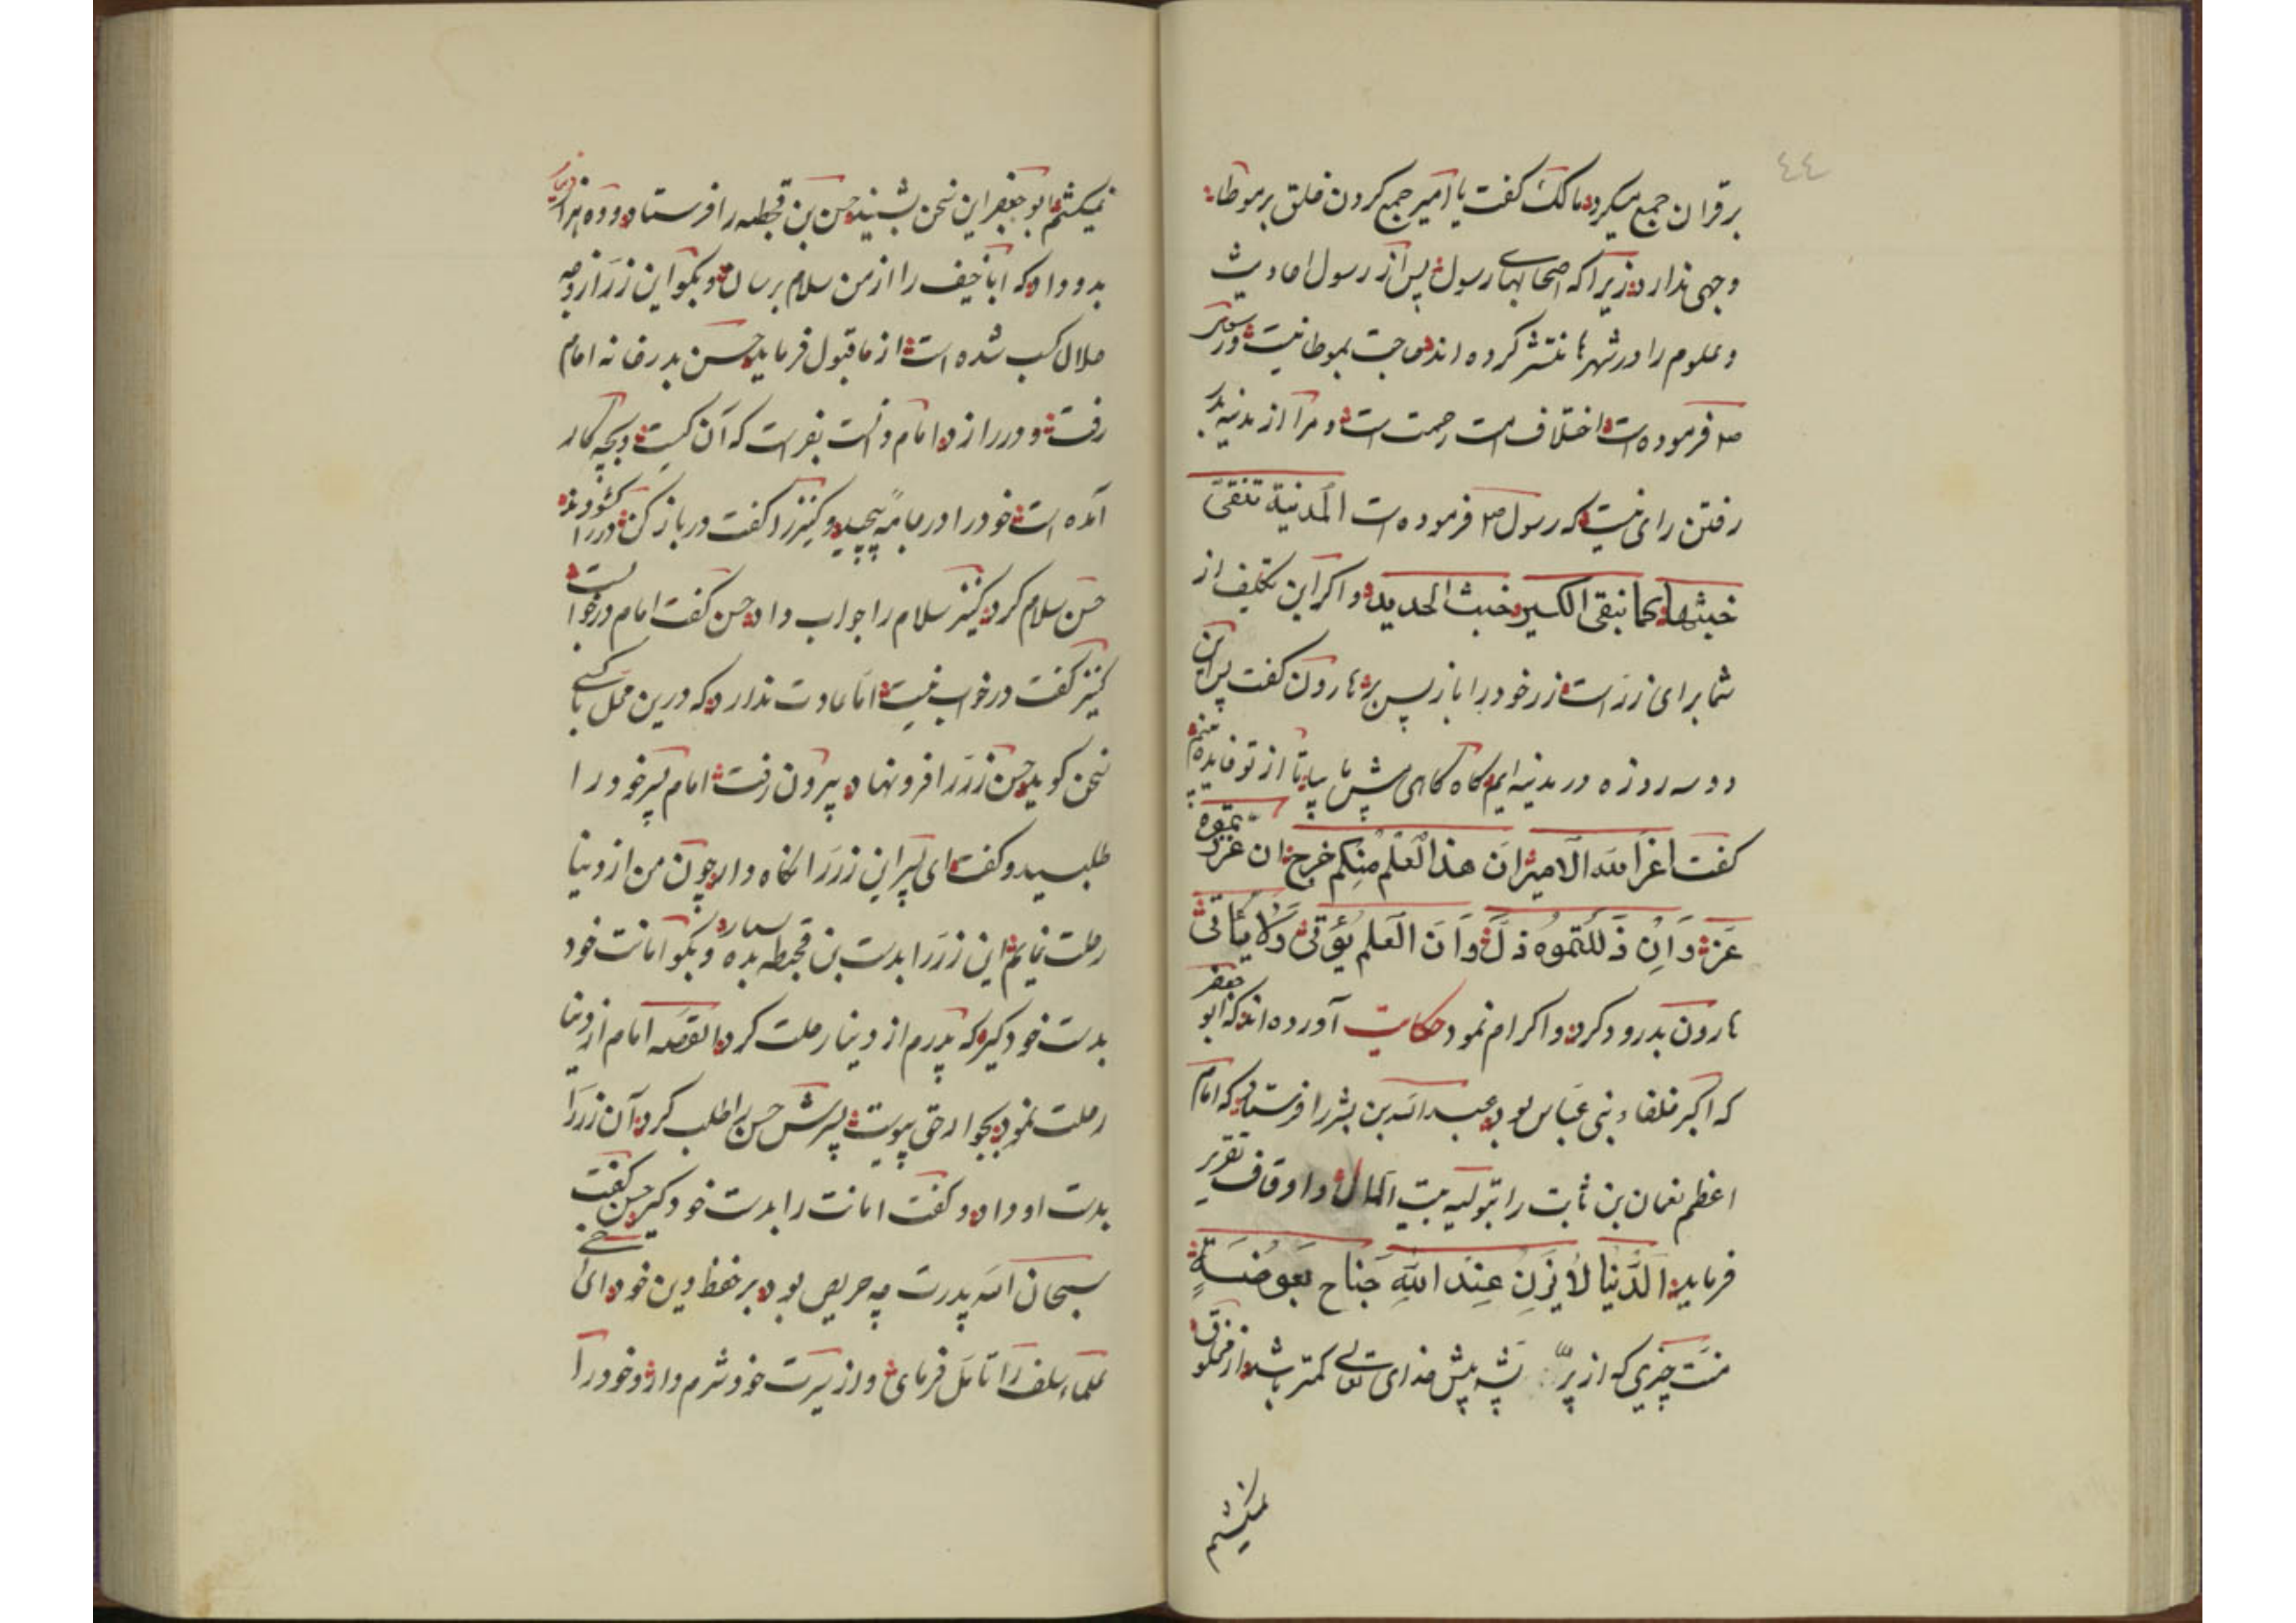 ٤٤
بر قران جمع میکرد مالک گفت یا امیر جمع کردن خلق بر موطا
وجهی ندارد زیرا که اصحابهای رسول پس از رسول احادیث
و علوم را در شهرها منتشر کرده اند حاجت بموطا نیست و رسول
صم فرموده است اختلاف امت رحمت است و مرا از مدینه بدر
رفتن رای نیست که رسول صم فرموده است المدنیة تنقی
خبثها کما نبقی الکیر خبث الحدید و اکر این تکلیف از
شما برای زرست زر خود را باز پس بر هارون گفت پس این
دو سه روزه در مدینه ایم گاه گاهی پش ما بیا تا از تو فایده
گفت اعز الله الامیر ان هذا العلم منکم خرج ان عززتموه
عز و ان ذللتموه ذل و ان العلم یؤتی ولا یأتی
هارون بدرود کرد و اکرام نمود حکایت آورده اند که ابو جعفر
که اکبر خلفاء بنی عباس بود عبد الله بن بشر را فرستاد که امام
اعظم نعمان بن ثابت را بتولیه بیت المال و اوقاف تقریر
فرماید الدنیا لا یزن عند الله جناح بعوضة
منت چیزی که از پر پشه پیش خدای تعالی کمتر باشد از مخلوق
نمیکشم
نمیکشم ابو جعفر این سخن بشنید حسن بن قحطبه را فرستاد و ده هزار دینار
بدو داد که ابا حنیف را از من سلام برسان و بکو این زر از وجه
حلال کسب شده است از ما قبول فرماید حسن بدر خانه امام
رفت و در را زد امام دانست بفراست که آن کیست و بچه کار
آمده است خود را در جامه پیچید و کنیزرا گفت در باز کن در را کشودند
حسن سلام کرد کنیز سلام را جواب داد حسن گفت امام در خوابست
کنیز گفت در خواب نیست اما عادت ندارد که درین محل با کسی
سخن کوید حسن زررا فرو نهاد و بیرون رفت امام پسر خود را
طلبید و گفت ای پسر این زررا نکاه دار چون من از دنیا
رحلت نمایم این زررا بدست بن قحبطه بده بسپار و بکو امانت خود
بدست خود کیر که پدرم از دنیا رحلت کرد القصه امام از دنیا
رحلت نمود بجوار حق پیوست پسرش حسن را طلب کرد آن زررا
بدست او داد و گفت امانت را بدست خود کیر حسن گفت
سبحان الله پدرت چه حریص بود بر حفظ دین خود ای اخی
علماء سلف را تأمل فرمای و از سیرت خود شرم دار و خود را